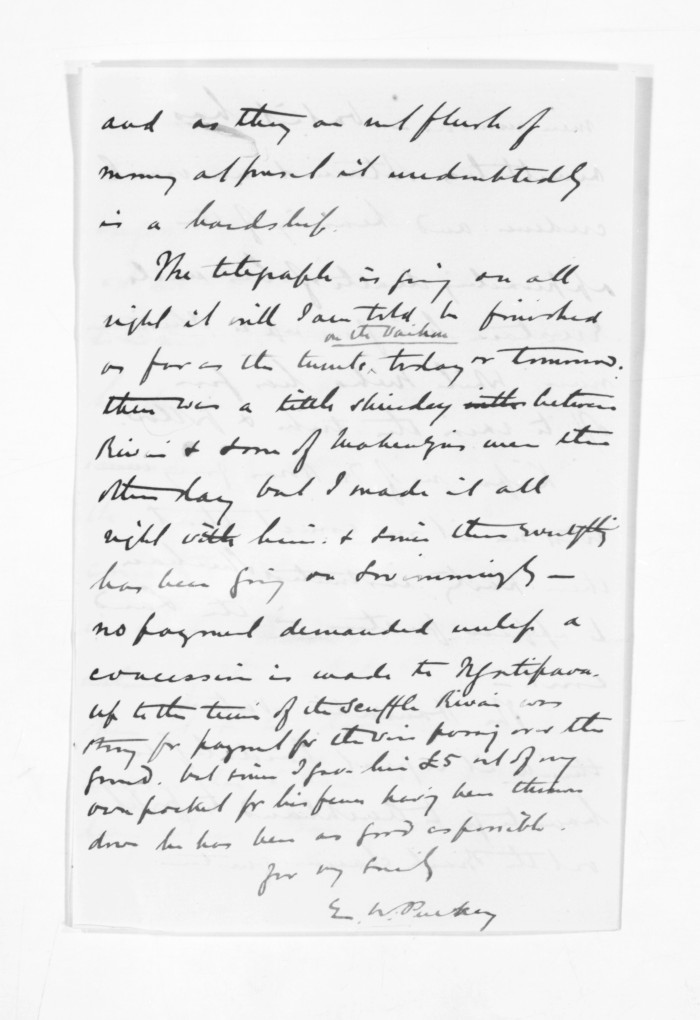 and as they are not flush of
money at present it undoubtedly
is a hardship.
The telegraph is going on all
right it will I am told be finished
on the Waihou
as far as the tunnels, today or tomorrow.
there was a little shindy between
Riwai & some of Mackay's men the
other day but I made it all
right with him. & since then everything
has been going on swimmingly —
no payment demanded unless a
concession is made to Ngatipaoa.
up to the time of the scuffle Riwai was
strong for payment for the wire passing over the
ground. but since I gave him £5 out of my
own pocket for his fences having been thrown
down he has been as good as possible.
Yours very truly
E. W. Puckey